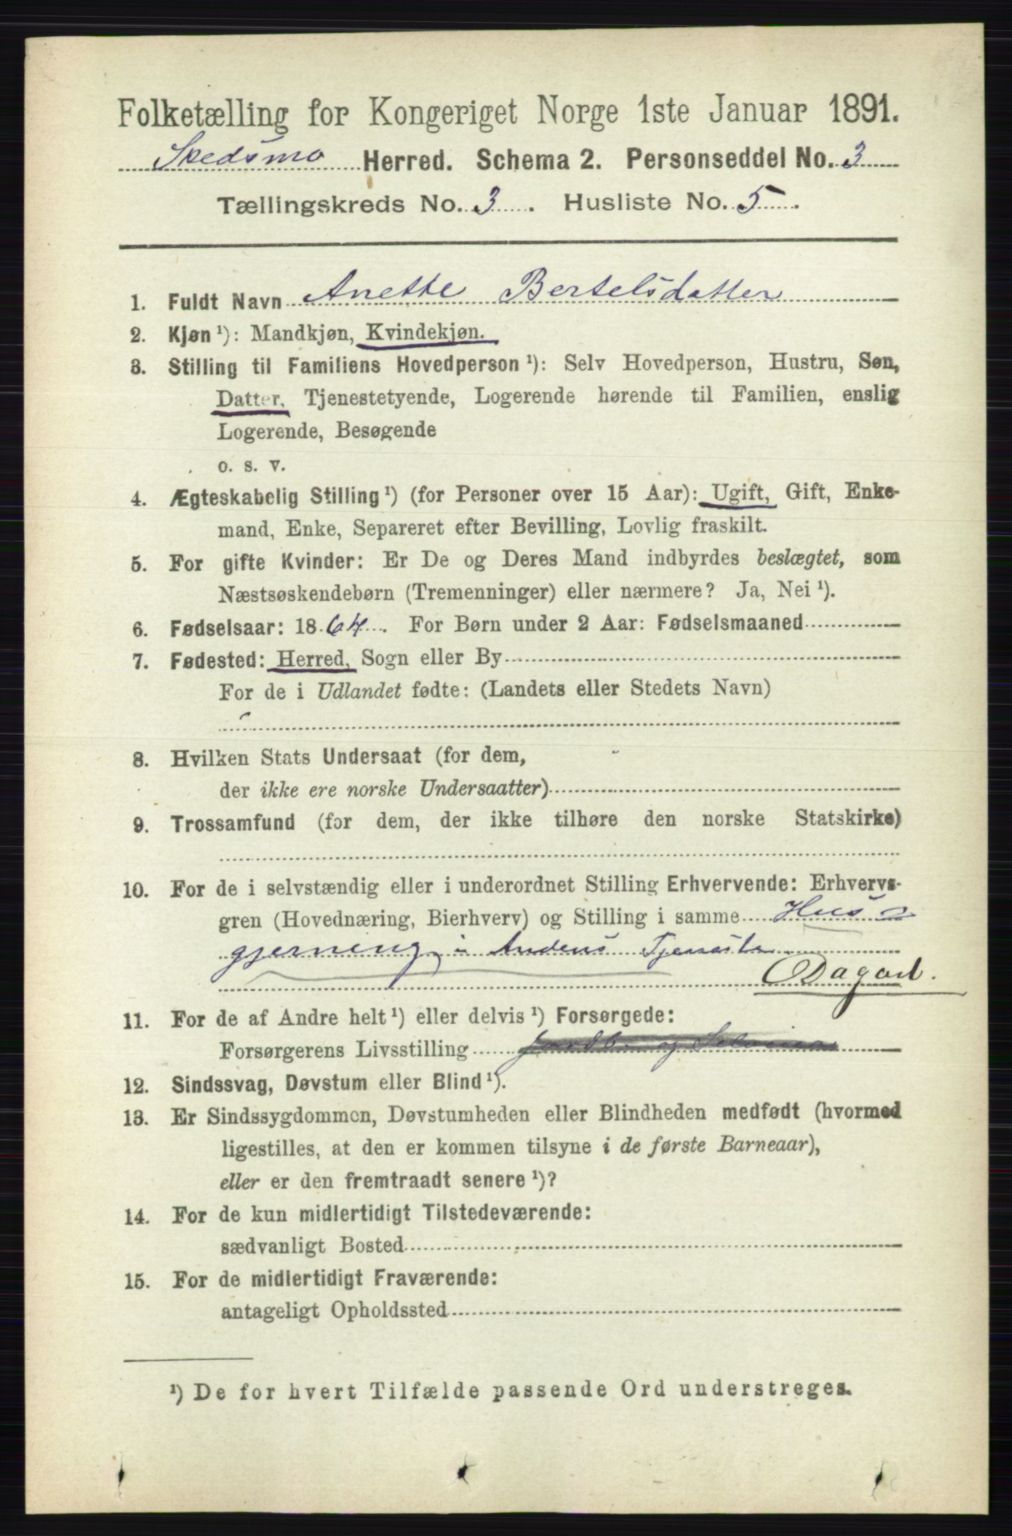 Folketælling for Kongeriget Norge 1ste Januar 1891.
Skedsmo Herred. Schema 2. Personseddel No. 3
Tællingskreds No. 3. Husliste No. 5.
1. Fuldt Navn Anette Bertelsdatter
2. Kjøn ¹): Mandkjøn, Kvindekjøn.
3. Stilling til Familiens Hovedperson ¹): Selv Hovedperson, Hustru, Søn,
Datter, Tjenestetyende, Logerende hørende til Familien, enslig
Logerende, Besøgende
o. s. v.
4. Ægteskabelig Stilling ¹) (for Personer over 15 Aar): Ugift, Gift, Enke-
mand, Enke, Separeret efter Bevilling, Lovlig fraskilt.
5. For gifte Kvinder: Er De og Deres Mand indbyrdes beslægtet, som
Næstsøskendebørn (Tremenninger) eller nærmere? Ja, Nei ¹).
6. Fødselsaar: 1864. For Børn under 2 Aar: Fødselsmaaned
7. Fødested: Herred, Sogn eller By
For de i Udlandet fødte: (Landets eller Stedets Navn)
8. Hvilken Stats Undersaat (for dem,
der ikke ere norske Undersaatter)
9. Trossamfund (for dem, der ikke tilhøre den norske Statskirke)
10. For de i selvstændig eller i underordnet Stilling Erhvervende: Erhvervs-
gren (Hovednæring, Bierhverv) og Stilling i samme Hus
gjerning i Andens Tjeneste
Dagarb.
11. For de af Andre helt ¹) eller delvis ¹) Forsørgede:
Forsørgerens Livsstilling
12. Sindssvag, Døvstum eller Blind ¹).
13. Er Sindssygdommen, Døvstumheden eller Blindheden medfødt (hvormed
ligestilles, at den er kommen tilsyne i de første Barneaar),
eller er den fremtraadt senere ¹)?
14. For de kun midlertidigt Tilstedeværende:
sædvanligt Bosted
15. For de midlertidigt Fraværende:
antageligt Opholdssted
¹) De for hvert Tilfælde passende Ord understreges.